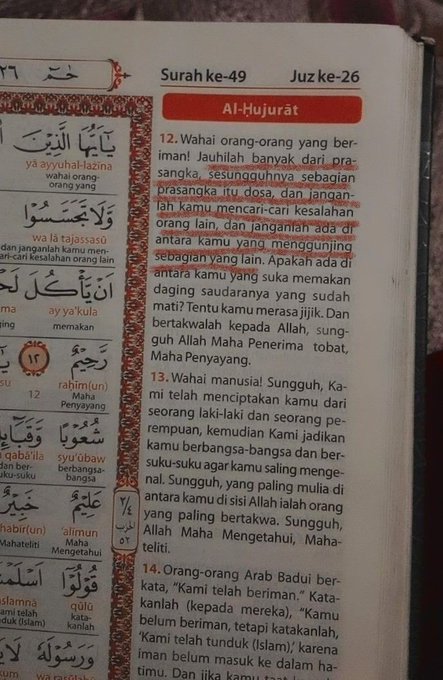 Surah ke-49 Juz ke-26
Al-Ḥujurāt
12. Wahai orang-orang yang ber-
iman! Jauhilah banyak dari pra-
sangka, sesungguhnya sebagian
prasangka itu dosa, dan jangan-
lah kamu mencari-cari kesalahan
orang lain, dan janganlah ada di
antara kamu yang menggunjing
sebagian yang lain. Apakah ada di
antara kamu yang suka memakan
daging saudaranya yang sudah
mati? Tentu kamu merasa jijik. Dan
bertakwalah kepada Allah, sung-
guh Allah Maha Penerima tobat,
Maha Penyayang.
13. Wahai manusia! Sungguh, Ka-
mi telah menciptakan kamu dari
seorang laki-laki dan seorang pe-
rempuan, kemudian Kami jadikan
kamu berbangsa-bangsa dan ber-
suku-suku agar kamu saling menge-
nal. Sungguh, yang paling mulia di
antara kamu di sisi Allah ialah orang
yang paling bertakwa. Sungguh,
Allah Maha Mengetahui, Maha-
teliti.
14. Orang-orang Arab Badui ber-
kata, “Kami telah beriman.” Kata-
kanlah (kepada mereka), “Kamu
belum beriman, tetapi katakanlah,
‘Kami telah tunduk (Islam),’ karena
iman belum masuk ke dalam ha-
timu. Dan jika kamu taat
حٰمۤ ٢٦
يٰٓاَيُّهَا الَّذِيْنَ
yā ayyuhal-lażīna
wahai orang-
orang yang
وَلَا تَجَسَّسُوْا
wa lā tajassasū
dan janganlah kamu men-
cari-cari kesalahan orang lain
اَنْ يَّأْكُلَ
ay ya'kula
memakan
رَّحِيْمٌ ١٢
raḥīm(un) 12
Maha
Penyayang
شُعُوْبًا وَّقَبَاۤىِٕلَ
syu'ūbaw
berbangsa-
bangsa
عَلِيْمٌ خَبِيْرٌ
'alīmun
Maha
Mengetahui
Mahateliti
قُوْلُوْٓا اَسْلَمْنَا
qūlū
kata-
kanlah
kami telah
tunduk (Islam)
وَرَسُوْلَهٗ
الحزب
٥٢